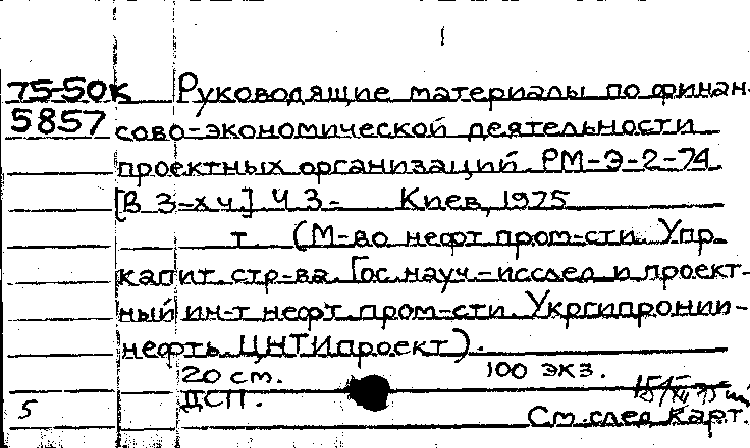 75-50к Руководящие материалы по финан-
5857 сово-экономической деятельности
проектных организаций. РМ-Э-2-74
[В 3-х ч.] Ч 3- Киев, 1975
т. (М-во нефт пром-сти. Упр.
капит. стр-ва. Гос. науч.-исслед и проект-
ный ин-т нефт. пром-сти. Укргипронии-
нефть. ЦНТИпроект).
20 см. 100 экз.
ДСП.
5 См. след карт.